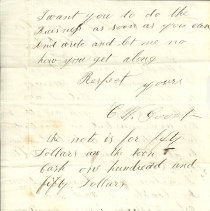 I want you to do the
buisness as soon as you can
and write and let me no
how you get along
Respect yours
C. H.
the note is for fifty
Dollars an the
Cash on hundred and
fifty Dollars